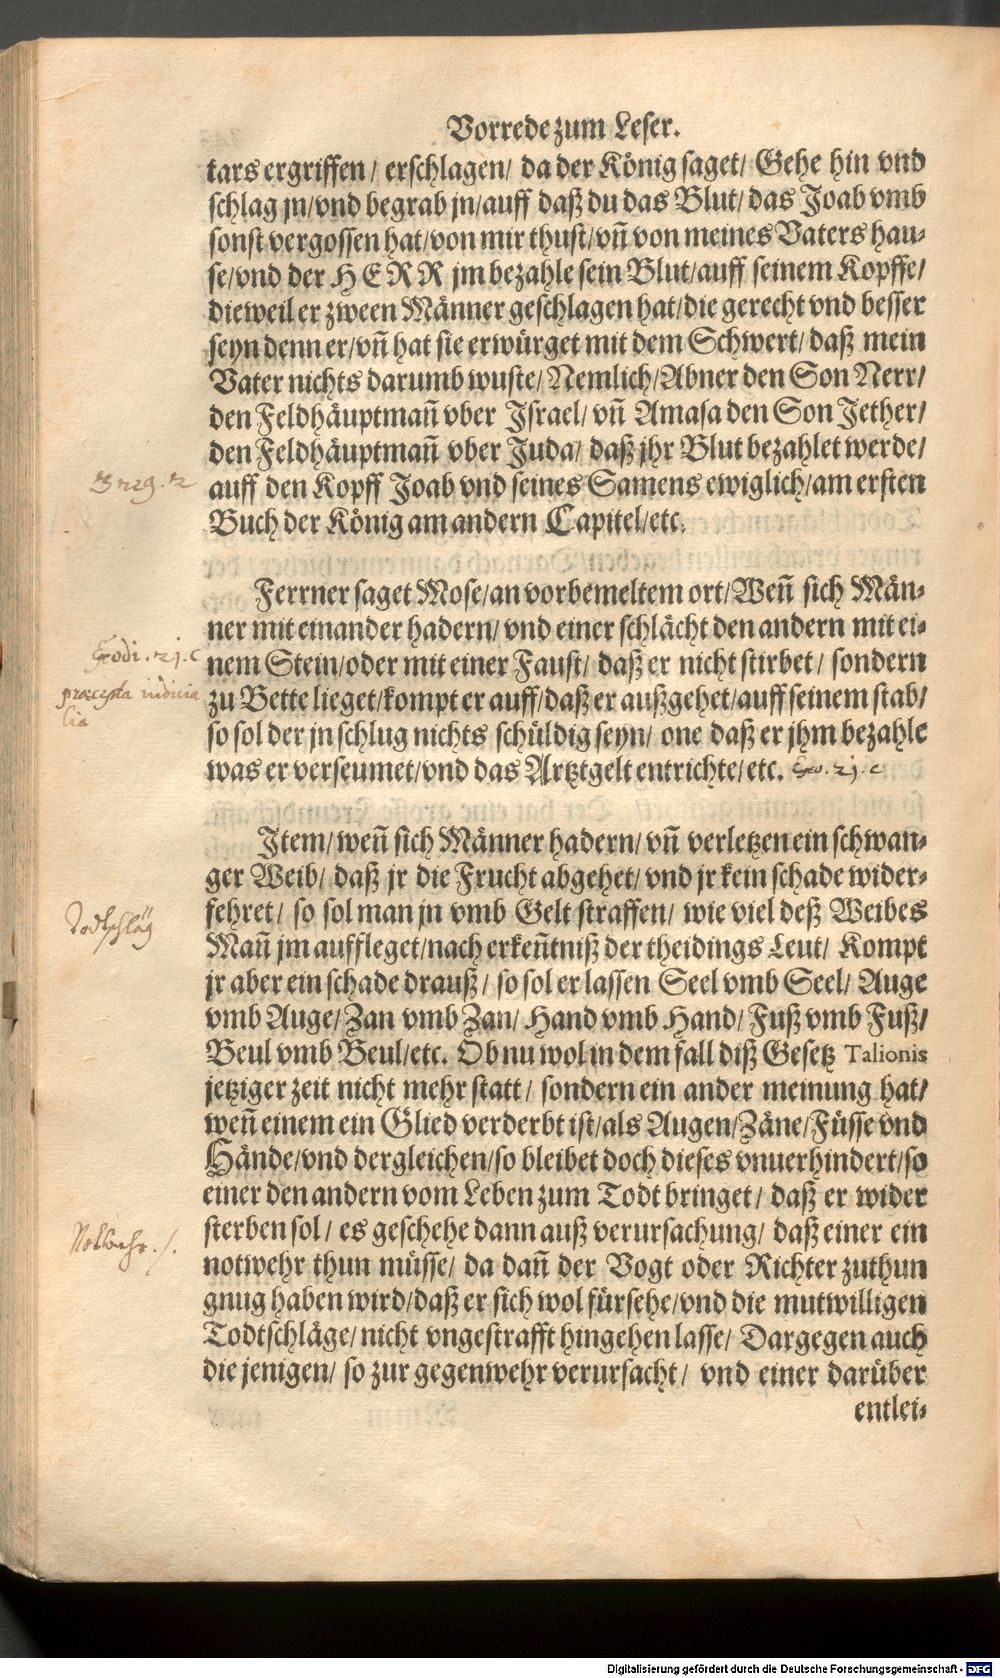 Vorrede zum Leser.
tars ergriffen / erschlagen / da der König saget / Gehe hin vnd
schlag jn / vnd begrab jn / auff daß du das Blut / das Joab vmb
sonst vergossen hat / von mir thust / vñ von meines Vaters hau-
se / vnd der HERR jm bezahle sein Blut / auff seinem Kopffe /
dieweil er zween Männer geschlagen hat / die gerecht vnd besser
seyn denn er / vñ hat sie erwürget mit dem Schwert / daß mein
Vater nichts darumb wuste / Nemlich / Abner den Son Nerr /
den Feldhäuptmañ vber Israel / vñ Amasa den Son Jether /
den Feldhäuptmañ vber Juda / daß jhr Blut bezahlet werde /
3 reg. 2
auff den Kopff Joab vnd seines Samens ewiglich / am ersten
Buch der König am andern Capitel / etc.
Ferrner saget Mose / an vorbemeltem ort / Weñ sich Män-
ner mit einander hadern / vnd einer schlächt den andern mit ei-
Exodi. 21. c
nem Stein / oder mit einer Faust / daß er nicht stirbet / sondern
præcepta iudicia
lia
zu Bette lieget / kompt er auff / daß er außgehet / auff seinem stab /
so sol der jn schlug nichts schüldig seyn / one daß er jhm bezahle
was er verseumet / vnd das Artztgelt entrichte / etc. Exo. 21. c
Item / weñ sich Männer hadern / vñ verletzen ein schwan-
ger Weib / daß jr die Frucht abgehet / vnd jr kein schade wider-
Todtschläg
fehret / so sol man jn vmb Gelt straffen / wie viel deß Weibes
Mañ jm auffleget / nach erkeñtniß der theidings Leut / Kompt
jr aber ein schade drauß / so sol er lassen Seel vmb Seel / Auge
vmb Auge / Zan vmb Zan / Hand vmb Hand / Fuß vmb Fuß /
Beul vmb Beul / etc. Ob nu wol in dem fall diß Gesetz Talionis
jetziger zeit nicht mehr statt / sondern ein ander meinung hat /
weñ einem ein Glied verderbt ist / als Augen / Zäne / Füsse vnd
Hände / vnd dergleichen / so bleibet doch dieses vnuerhindert / so
einer den andern vom Leben zum Todt bringet / daß er wider
Notwehr. /.
sterben sol / es geschehe dann auß verursachung / daß einer ein
notwehr thun müsse / da dañ der Vogt oder Richter zuthun
gnug haben wird / daß er sich wol fürsehe / vnd die mutwilligen
Todtschläge / nicht vngestrafft hingehen lasse / Dargegen auch
die jenigen / so zur gegenwehr verursacht / vnd einer darüber
entlei-
Digitalisierung gefördert durch die Deutsche Forschungsgemeinschaft - DFG